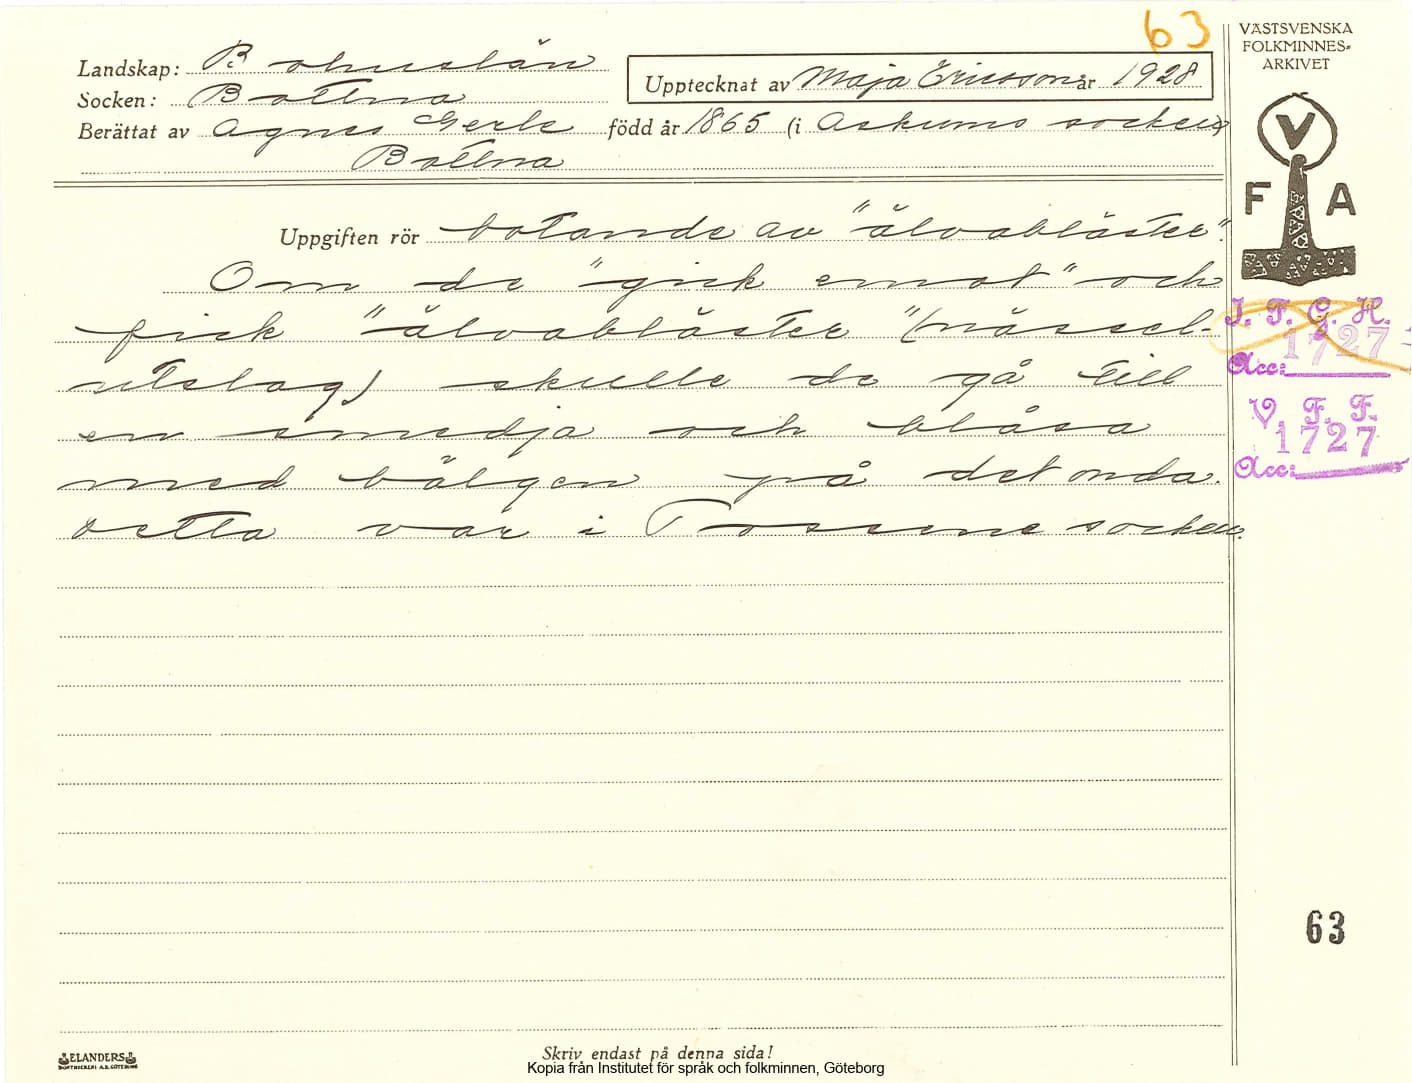 63
VÄSTSVENSKA
FOLKMINNES-
ARKIVET
Landskap: Bohuslän
Upptecknat av Maja Ericsson år 1928
Socken: Bottna
Berättat av Agnes Gerle född år 1865 (i Askums socken)
Bottna
V
F A
Uppgiften rör botande av "älvabläster".
Om de "gick emot" och
fick "älvabläster" (nässel-
utslag) skulle de gå till
en smedja och blåsa
med bälgen på det onda.
Detta var i Tossene socken.
I. F. G. H.
1727
Acc:
V. F. F.
1727
Acc:
63
Skriv endast på denna sida!
ELANDERS
BOKTRYCKERI A.B. GÖTEBORG
Kopia från Institutet för språk och folkminnen, Göteborg